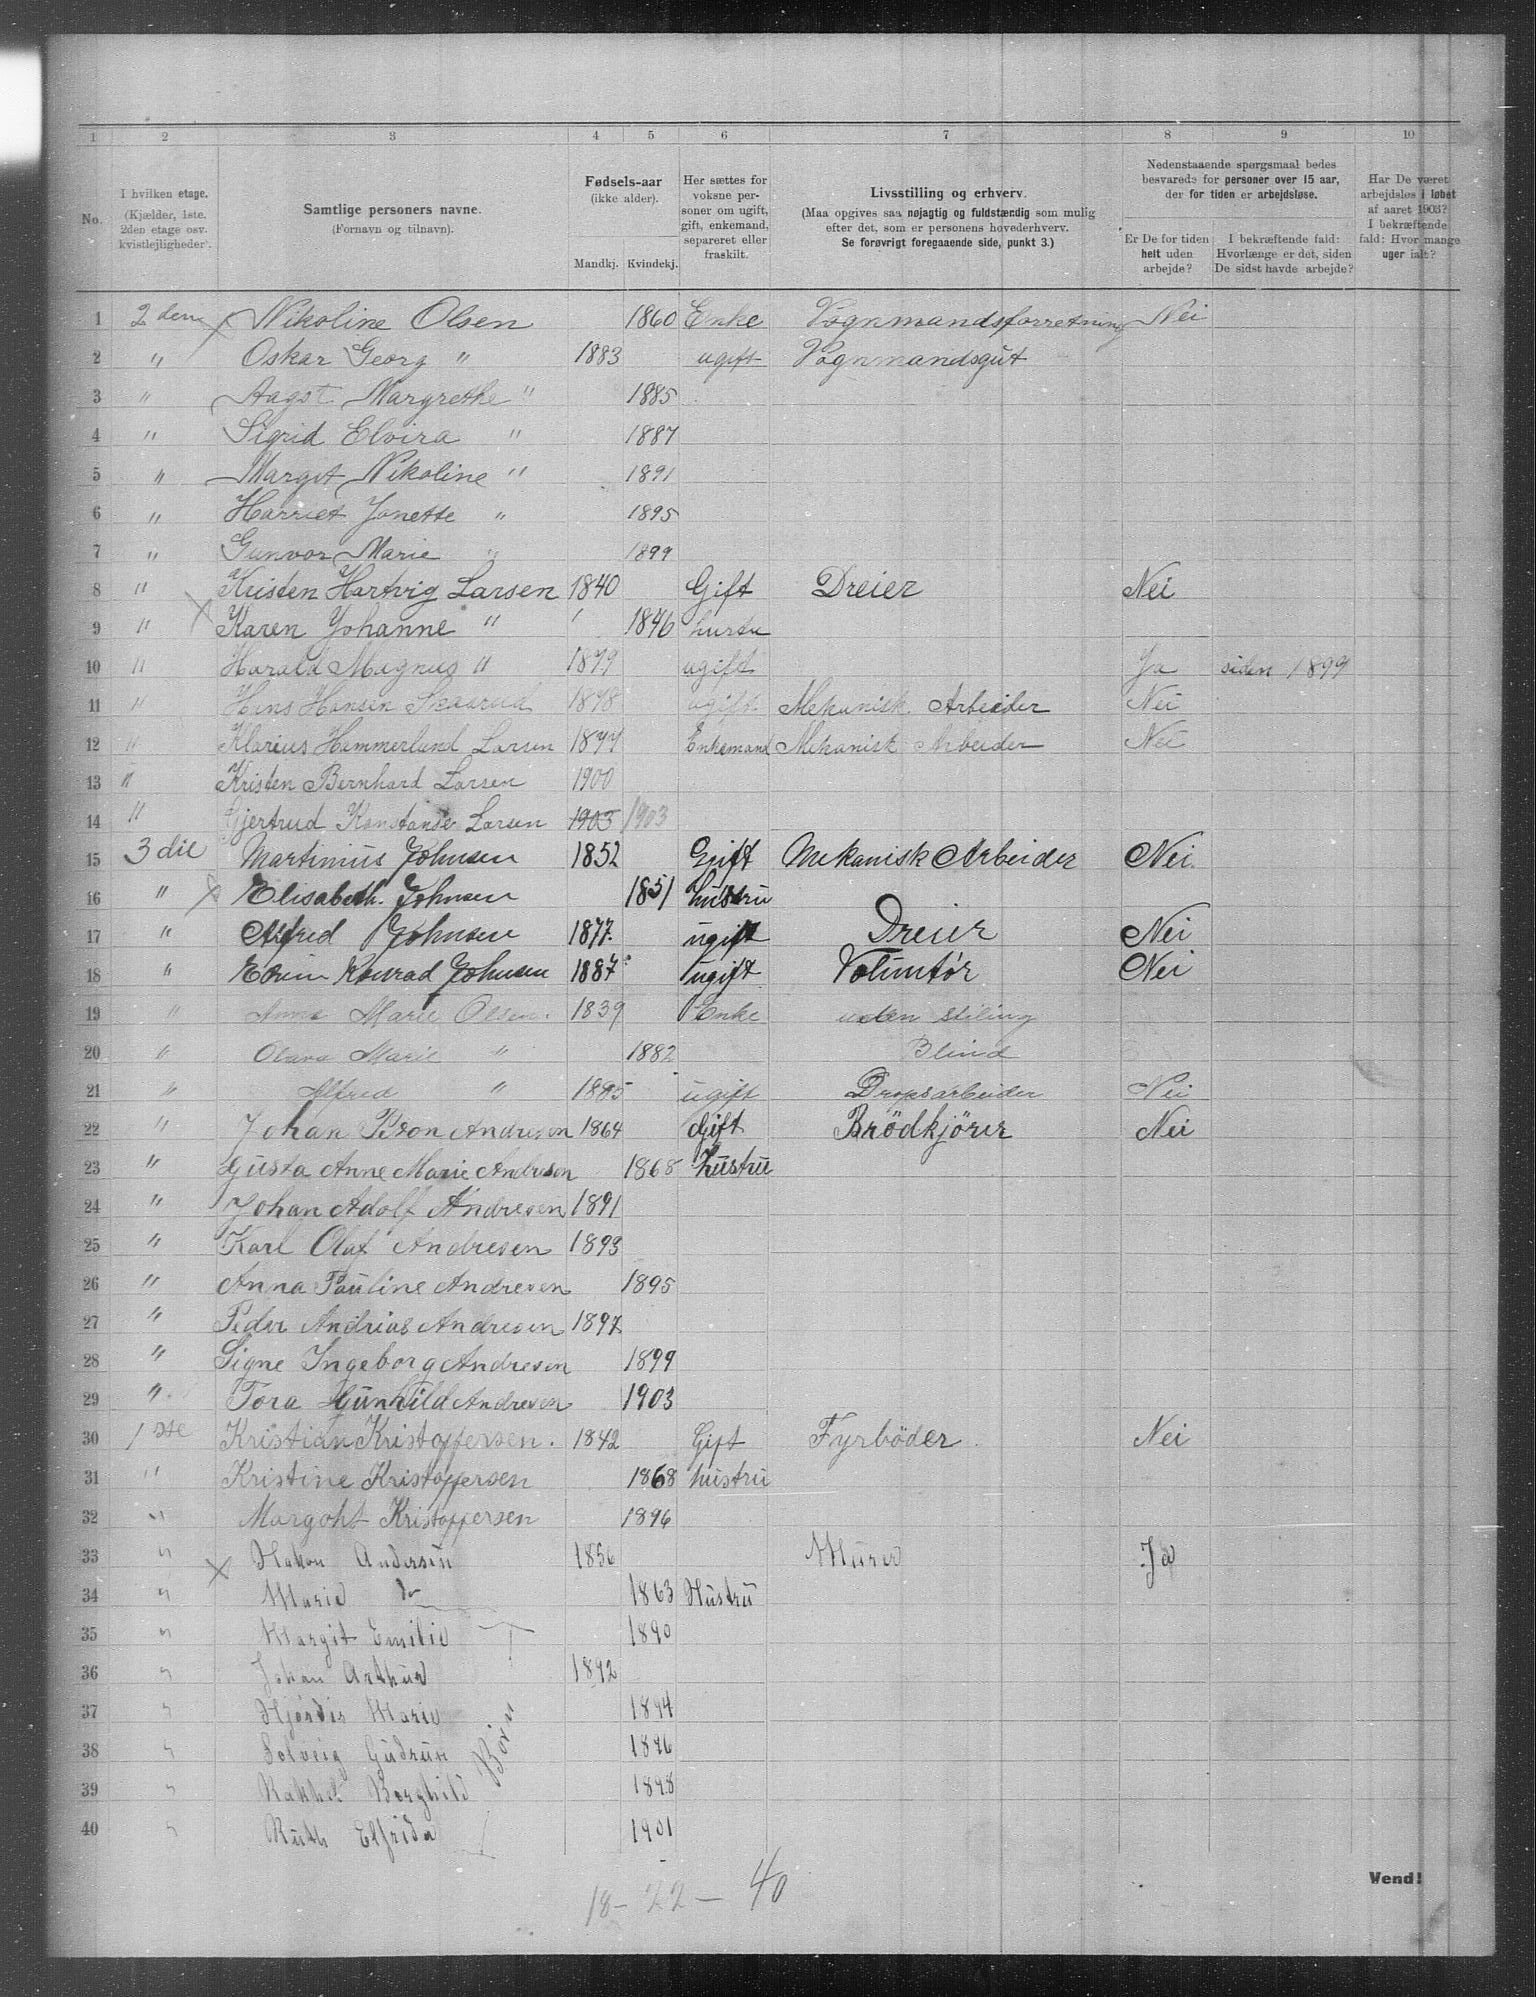 1 2 3 4 5 6 7 8 9 10
No.
I hvilken etage.
(Kjælder, 1ste.
2den etage osv.
kvistlejligheder).
Samtlige personers navne.
(Fornavn og tilnavn).
Fødsels-aar
(ikke alder).
Mandkj. Kvindekj.
Her sættes for
voksne per-
soner om ugift,
gift, enkemand,
separeret eller
fraskilt.
Livsstilling og erhverv.
(Maa opgives saa nøjagtig og fuldstændig som mulig
efter det, som er personens hovederhverv.
Se forøvrigt foregaaende side, punkt 3.)
Nedenstaaende spørgsmaal bedes
besvareds for personer over 15 aar,
der for tiden er arbejdsløse.
Er De for tiden
helt uden
arbejde?
I bekræftende fald:
Hvorlænge er det, siden
De sidst havde arbejde?
Har De været
arbejdsløs i løbet
af aaret 1903?
I bekræftende
fald: Hvor mange
uger ialt?
1 2den Nikoline Olsen 1860 Enke Vognmandsforretning Nei
2 " Oskar Georg " 1883 ugift Vognmandsgut
3 " Aagst Margrethe " 1885
4 " Sigrid Elvira " 1887
5 " Margit Nikoline " 1891
6 " Harriet Janette " 1895
7 " Gunvor Marie " 1899
8 " Kristen Hartvig Larsen 1840 Gift Dreier Nei
9 " Karen Johanne " 1846 hustu
10 " Harald Magnus " 1879 ugift Ja siden 1899
11 " Hans Hansen Skaarud 1878 ugift. Mekanisk. Arbeider Nei
12 " Klarius Hammerlund Larsen 1877 Enkemand Mekanisk Arbeider Nei
13 " Kristen Bernhard Larsen 1900
14 " Gjertrud Konstanse Larsen 1903 1903
15 3die Martinius Johnsen 1852 Gift Mekanisk Arbeider Nei.
16 " Elisabeth. Johnsen 1851 hustru
17 " Alfred Johnsen 1877. ugift Dreier Nei
18 " Edvin Konrad Johnsen 1887 ugift Voluntör Nei
19 " Anna Marie Olsen. 1839 Enke uden stiling
20 " Olava Marie " 1882 Blind
21 " Alfred " 1885 ugift Dropsarbeider Nei
22 " Johan Peron Andresen 1864 Gift Brödkjörer Nei
23 " Gusta Anne Marie Andresen 1868 hustru
24 " Johan Adolf Andresen 1891
25 " Karl Olaf Andresen 1893
26 " Anna Pauline Andresen 1895
27 " Peder Andrias Andresen 1897
28 " Signe Ingeborg Andresen 1899
29 " Tora Gunhild Andresen 1903
30 1ste Kristian Kristoffersen. 1842 Gift Fyrböder Nei
31 " Kristine Kristoffersen 1868 hustru
32 " Margoht Kristoffersen 1896
33 " Hakon Andersen 1856 Murer Ja
34 " Marie do 1863 Hustru
35 " Margit Emilie 1890
36 " Johan Arthur 1892
37 " Hjørdis Marie 1894
38 " Solveig Gudrun 1896
39 " Rakhel Borghild 1898
40 " Ruth Elfrida 1901
Børn
18 - 22 - 40
Vend!